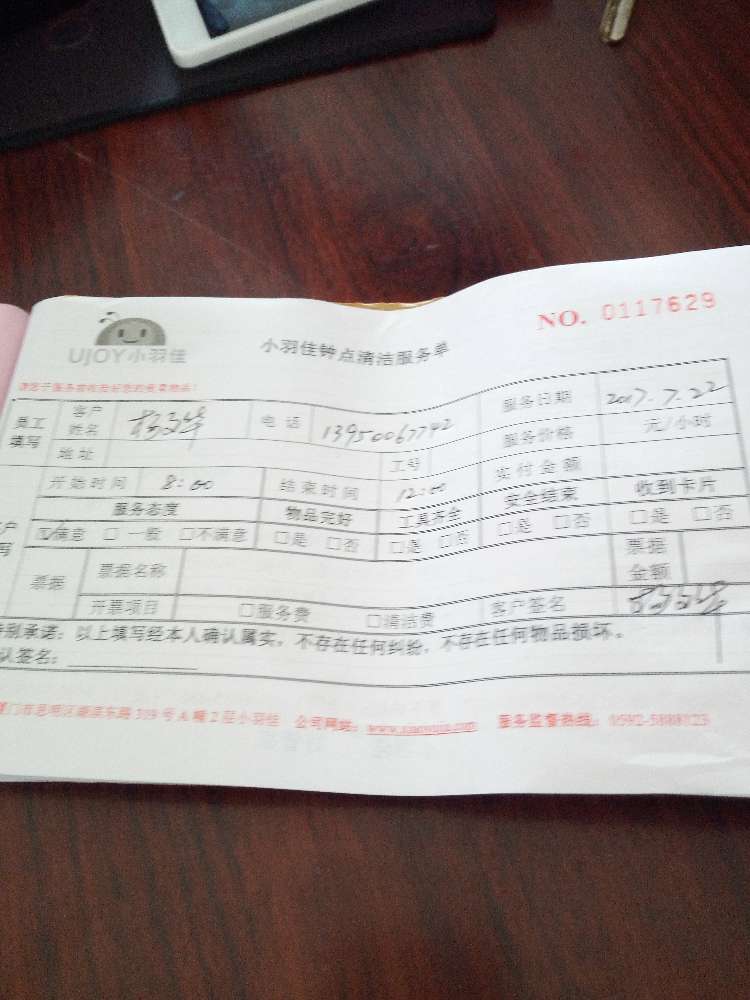 NO. 0117629
UJOY小羽佳
小羽佳钟点清洁服务单
员工填写 客户姓名 电话 13950067742 服务日期 2017.7.22
地址 工号 服务价格 元/小时
开始时间 8:00 结束时间 12:00 实付金额
服务态度 物品完好 工具齐全 安全结束 收到卡片
☑满意 □一般 □不满意 □是 □否 □是 □否 □是 □否 □是 □否
票据 票据名称 票据金额
开票项目 □服务费 □清洁费 客户签名
特别承诺：以上填写经本人确认属实，不存在任何纠纷，不存在任何物品损坏。
认签名：
厦门市思明区湖滨东路319号A幢2层小羽佳 公司网站：www.xiaoyujia.com 服务监督热线：0592-5888123